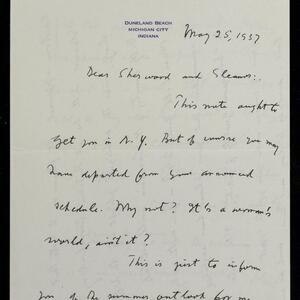 DUNELAND BEACH
MICHIGAN CITY
INDIANA
May 25, 1937
Dear Sherwood and Eleanor:
This note ought to
get you in N.Y. But of course you may
have departed from your announced
schedule. Why not? It's a woman's
world, ain't it?
This is just to inform
you of the summer outlook for me